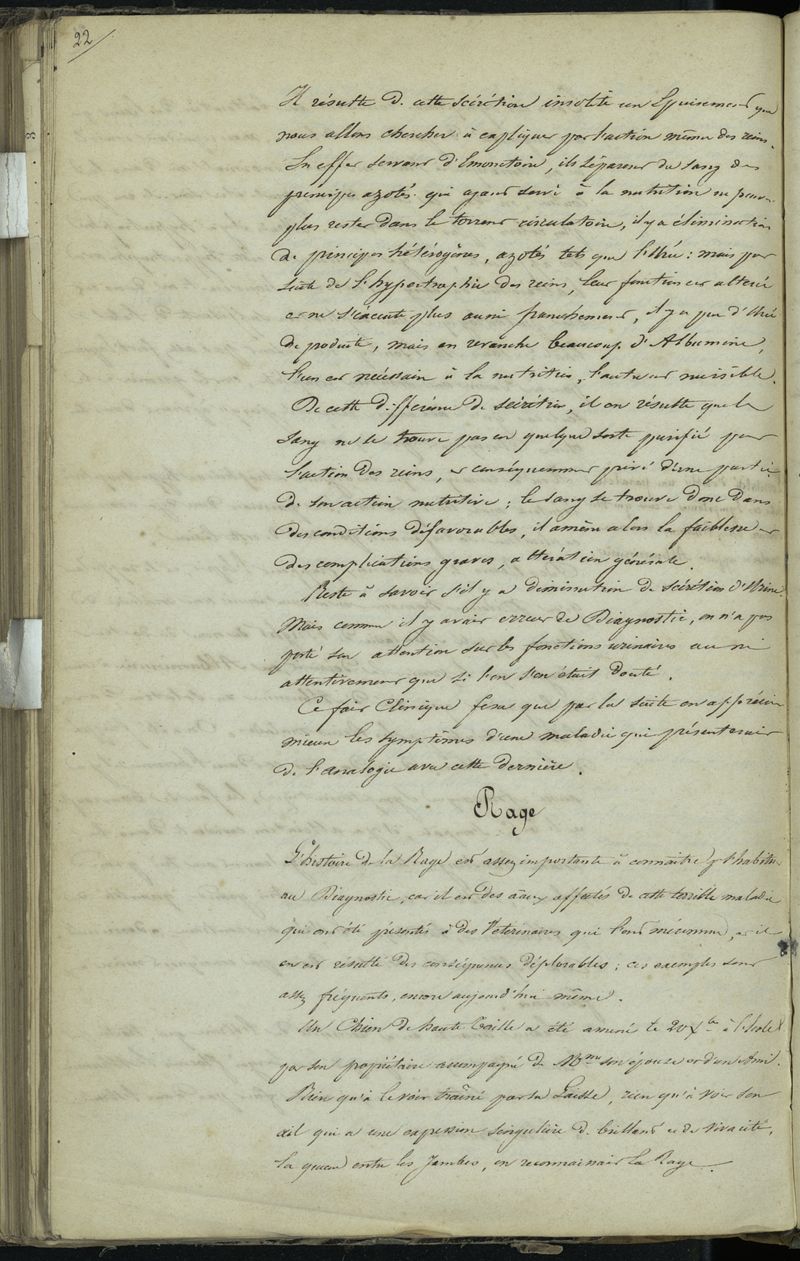 22
Il résulte de cette sécrétion insolite un Epuisement que
nous allons chercher à expliquer par l'action même des reins.
En effet servant d'émonctoire, ils séparent du sang des
principes azotés qui ayant servi à la nutrition ne peuvent
plus rester dans le torrent circulatoire, il y a élimination
de principes hétérogènes, azotés tels que l'Urée : mais par
suite de l'hypertrophie des reins, leur fonction est altérée
et ne s'exécute plus aussi franchement, il y a peu d'Urée
de produite, mais en revanche beaucoup d'Albumine,
l'un est nécessaire à la nutrition, l'autre est nuisible.
De cette différence de sécrétion, il en résulte que le
sang ne se trouve pas en quelque sorte purifié par
l'action des reins, et conséquemment privé d'une partie
de son action nutritive ; le sang se trouve donc dans
des conditions défavorables, il amène alors la faiblesse et
des complications graves, altération générale.
Reste à savoir s'il y a diminution de sécrétion d'Urine
Mais comme il y avait erreur de Diagnostic, on n'a pas
porté son attention sur les fonctions urinaires aussi
attentivement que si l'on s'en était douté.
Ce fait Clinique fera que par la suite on appréciera
mieux les symptômes d'une maladie qui présenterait
de l'analogie avec cette dernière.
Rage
L'histoire de la Rage est assez importante à connaitre p. l'habitude
au Diagnostic, car il est des anaux affectés de cette terrible maladie
qui ont été présentés à des Vétérinaires qui l'ont méconnue, et il
en est résulté des conséquences déplorables ; ces exemples sont
assez fréquents, encore aujourd'hui même.
Un Chien de haute taille a été amené le 20 Xbre à l'Ecole
par son propiétaire acompagné de Mme son épouse et d'un Ami.
Rien qu'à le voir traîné par la Laisse, rien qu'à voir son
œil qui a une expression singulière de brillant et de vivacité,
la queue entre les Jambes, on reconnaissait la Rage.